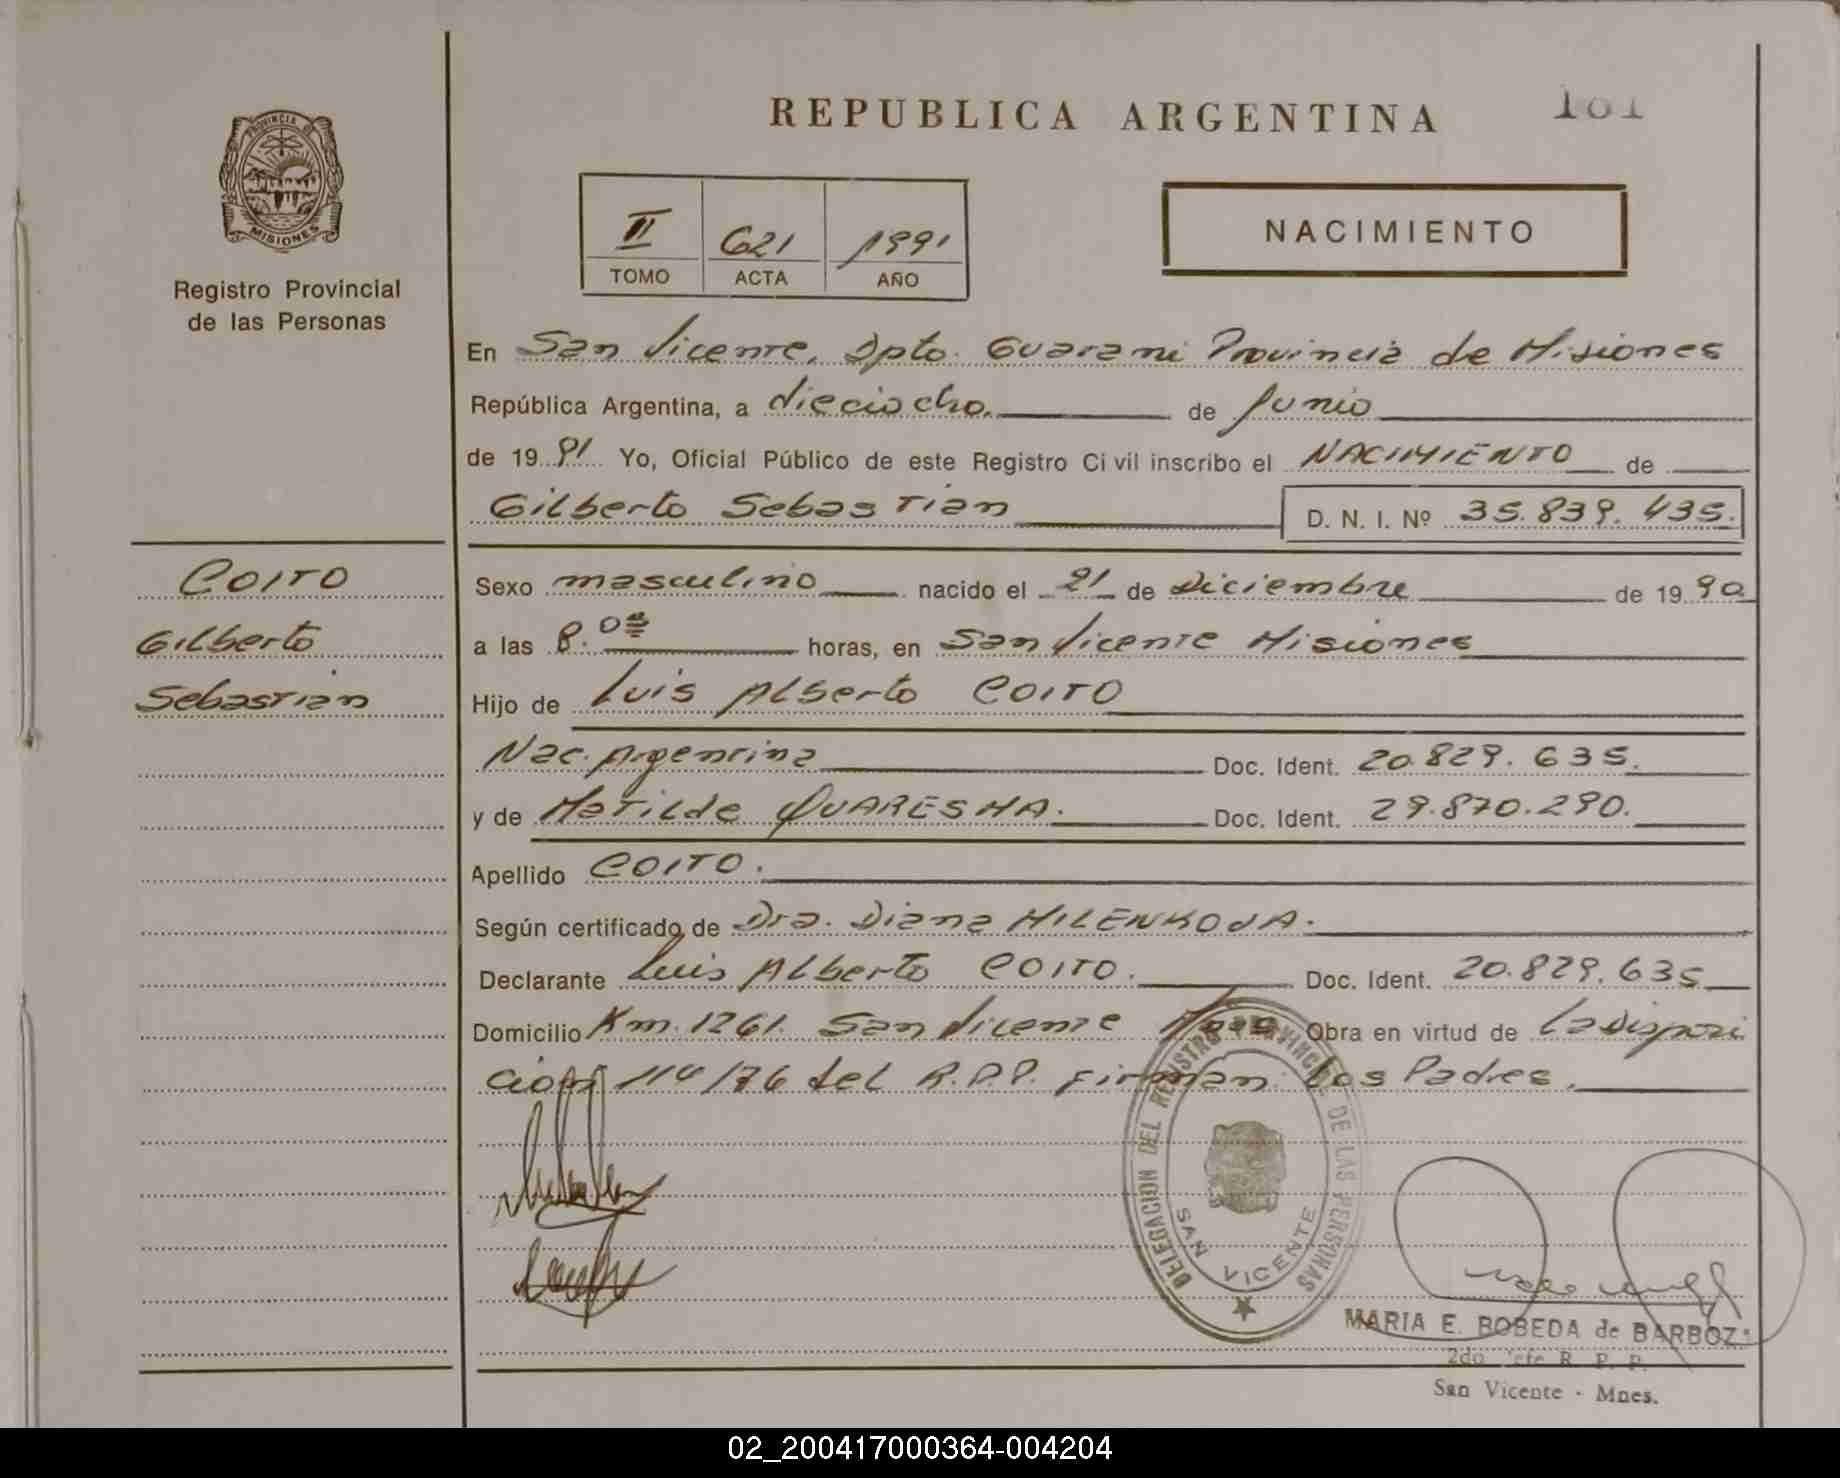 REPUBLICA ARGENTINA
181
PROVINCIA DE
MISIONES
Registro Provincial
de las Personas
II 621 1991
TOMO ACTA AÑO
NACIMIENTO
En San Vicente, Dpto. Guarani Provincia de Misiones
República Argentina, a dieciocho. de Junio
de 19 91 Yo, Oficial Público de este Registro Civil inscribo el NACIMIENTO de
Gilberto Sebastian D. N. I. Nº 35.839.435.
COITO
Gilberto
Sebastian
Sexo masculino nacido el 21 de Diciembre de 19 90
a las 8.00 horas, en San Vicente Misiones
Hijo de Luis Alberto COITO
Nac. Argentina Doc. Ident. 20.829.635.
y de Matilde QUARESMA. Doc. Ident. 29.870.290.
Apellido COITO.
Según certificado de Dra. Diana MILENKOVA.
Declarante Luis Alberto COITO. Doc. Ident. 20.829.635
Domicilio Km. 1261. San Vicente Obra en virtud de La Disposi
cion 114/76 del R.P.P. Firman Los Padres.
DELEGACION DEL REGISTRO PROVINCIAL DE LAS PERSONAS
SAN VICENTE
MARIA E. BOBEDA de BARBOZ
2do Jefe R. P. P.
San Vicente - Mnes.
02_200417000364-004204